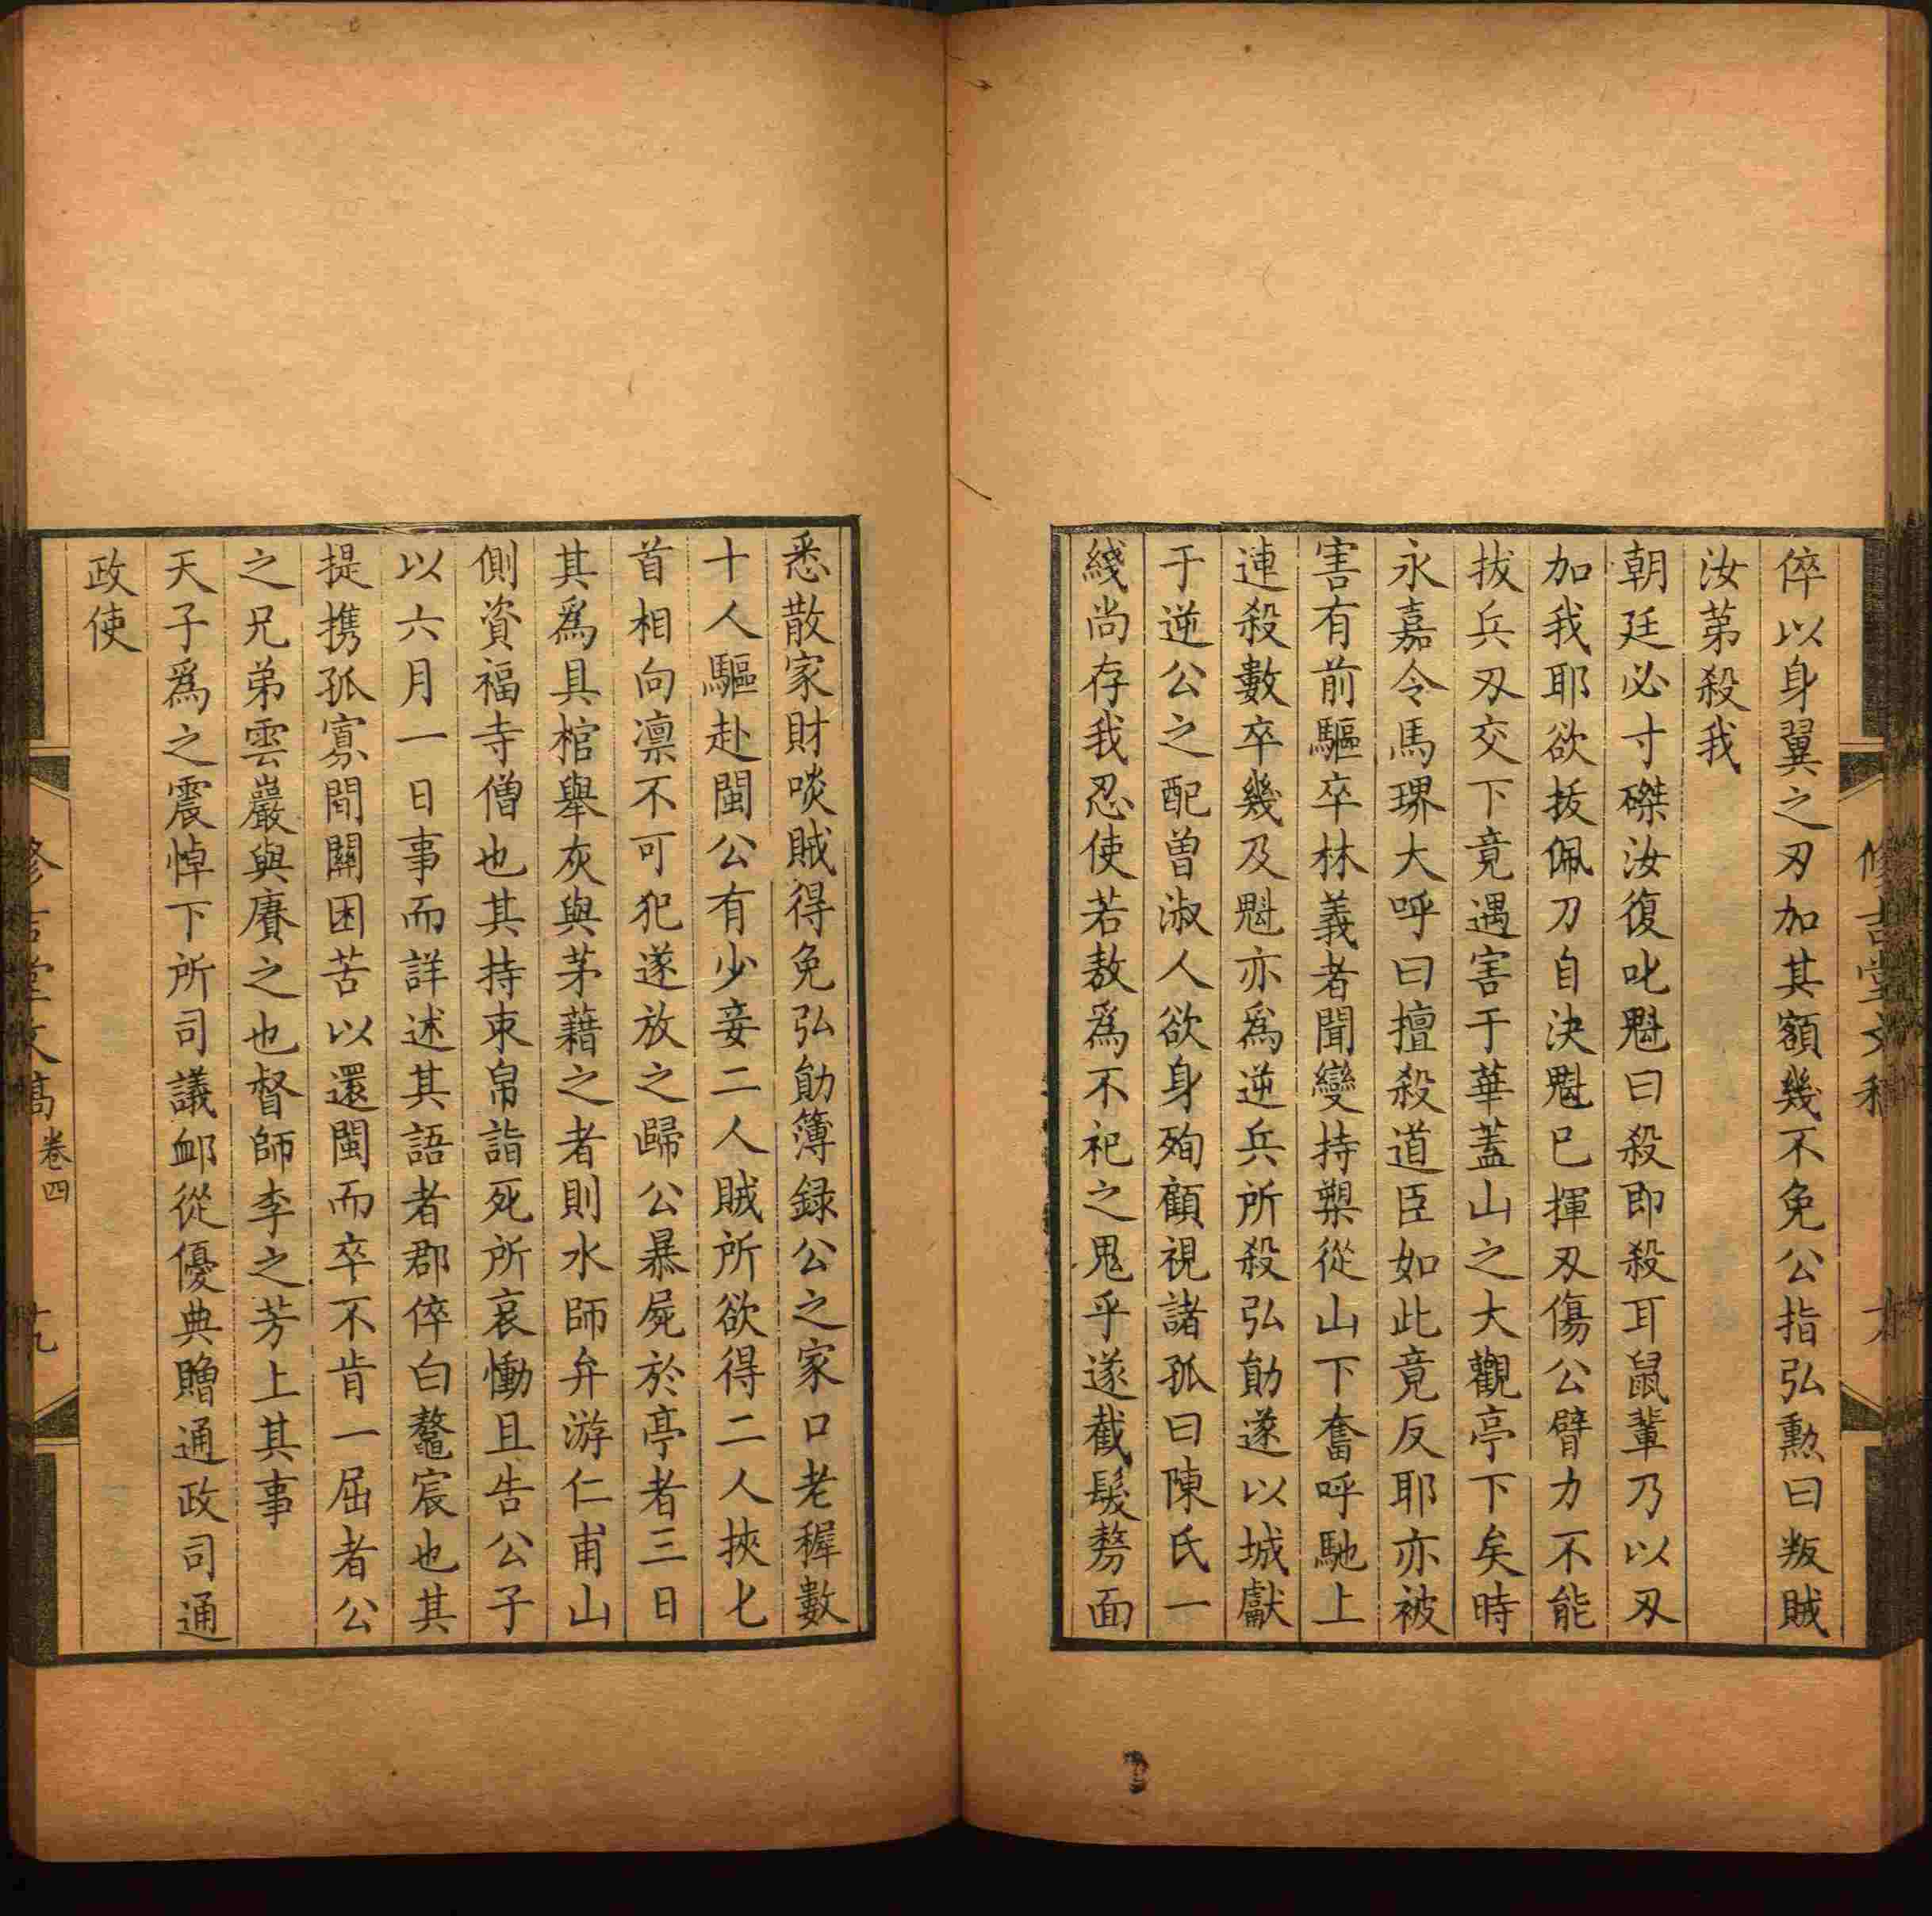 倅以身翼之刃加其額幾不免公指弘勲曰叛賊
汝苐殺我
朝廷必寸磔汝復叱魁曰殺即殺耳鼠輩乃以刃
加我耶欲拔佩刀自決魁已揮刃傷公臂力不能
拔兵刃交下竟遇害于華蓋山之大觀亭下矣時
永嘉令馬琾大呼曰擅殺道臣如此竟反耶亦被
害有前驅卒林義者聞變持槊從山下奮呼馳上
連殺數卒幾及魁亦為逆兵所殺弘勛遂以城獻
于逆公之配曾淑人欲身殉顧視諸孤曰陳氏一
綫尚存我忍使若敖為不祀之鬼乎遂截髮剺面
悉散家財啖賊得免弘勛簿録公之家口老穉數
十人驅赴閩公有少妾二人賊所欲得二人挾匕
首相向凛不可犯遂放之歸公暴屍於亭者三日
其爲具棺舉灰與茅藉之者則水師弁游仁甫山
側資福寺僧也其持束帛詣死所哀慟且告公子
以六月一日事而詳述其語者郡倅白鼇宸也其
提携孤寡間關困苦以還閩而卒不肯一屈者公
之兄弟雲巖與賡之也督師李之芳上其事
天子爲之震悼下所司議卹從優典贈通政司通
政使
修吉堂文稿
卷四
九